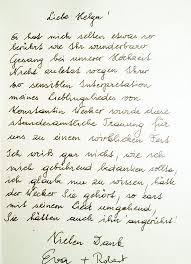 Liebe Helga!
Es hat mich selten etwas so
berührt wie Ihr wunderbarer
Gesang bei unserer Hochzeit
wegen Ihrer
so sensiblen Interpretation
meiner Lieblingslieder von
Konstantin Wecker wurde diese
standesamtliche Trauung für
uns zu einem wirklichen Fest
Ich weiß gar nicht, wie ich
mich gebührend bedanken sollte,
ich glaube nur zu wissen, hätte
der Wecker Sie gehört, so zart
mit seinem Lied umgehend
Sie hätten auch ihn angerührt!
Vielen Dank
Eva + Robert